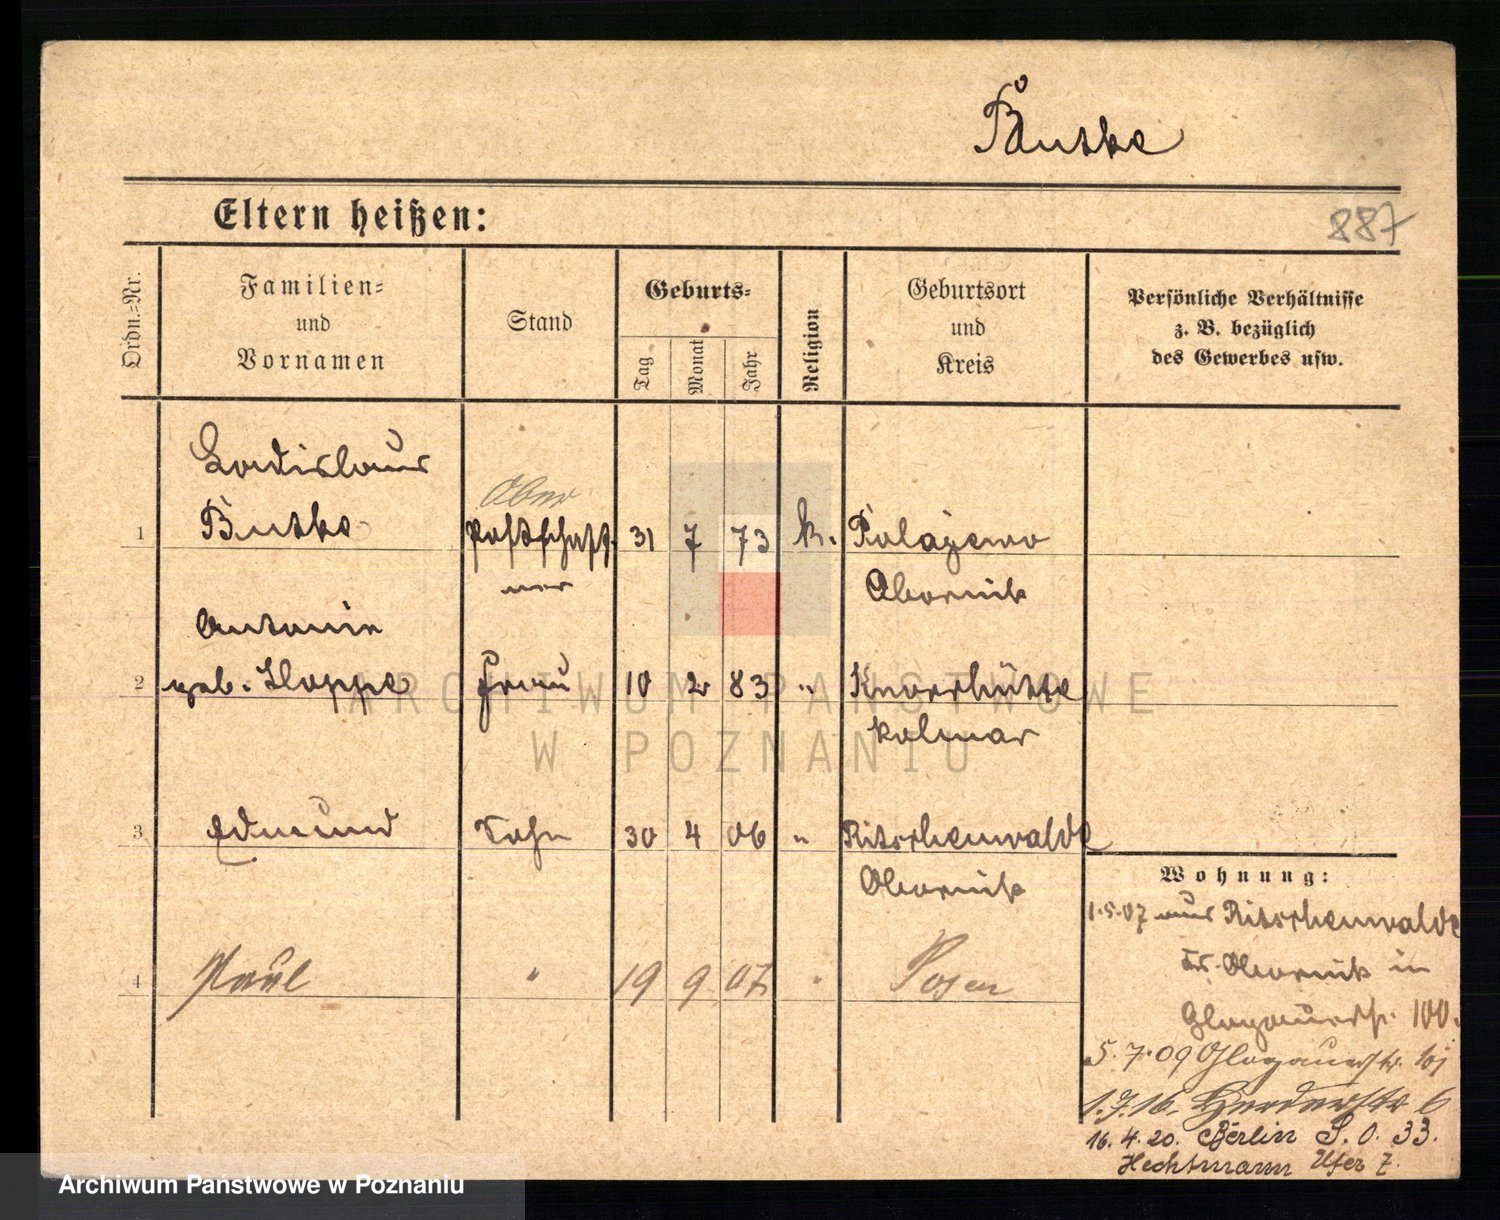 Butke
Eltern heißen:
887
Ordn.=Nr.
Familien=
und
Vornamen
Stand
Geburts=
Tag
Monat
Jahr
Religion
Geburtsort
und
Kreis
Persönliche Verhältnisse
z. B. bezüglich
des Gewerbes usw.
Ladislaus
Ober
1 Butke Postschaff= 31 7 73 k. Polajewo
ner Obornik
Antonie
2 geb. Hoppe Frau 10 2 83 " Knorrhütte
Kolmar
3 Edmund Sohn 30 4 06 " Ritschenwalde
Obornik
4 Paul " 19 9 07 " Posen
Wohnung:
1.5.07 aus Ritschenwalde
Kr. Obornik in
Glogauerstr. 100.
5.7.09 Glogauerstr. 101
1.7.16. Herderstr 6
16.4.20. Berlin S.O. 33.
Hechtmann Ufer 7.
ARCHIWUM PAŃSTWOWE
W POZNANIU
Archiwum Państwowe w Poznaniu